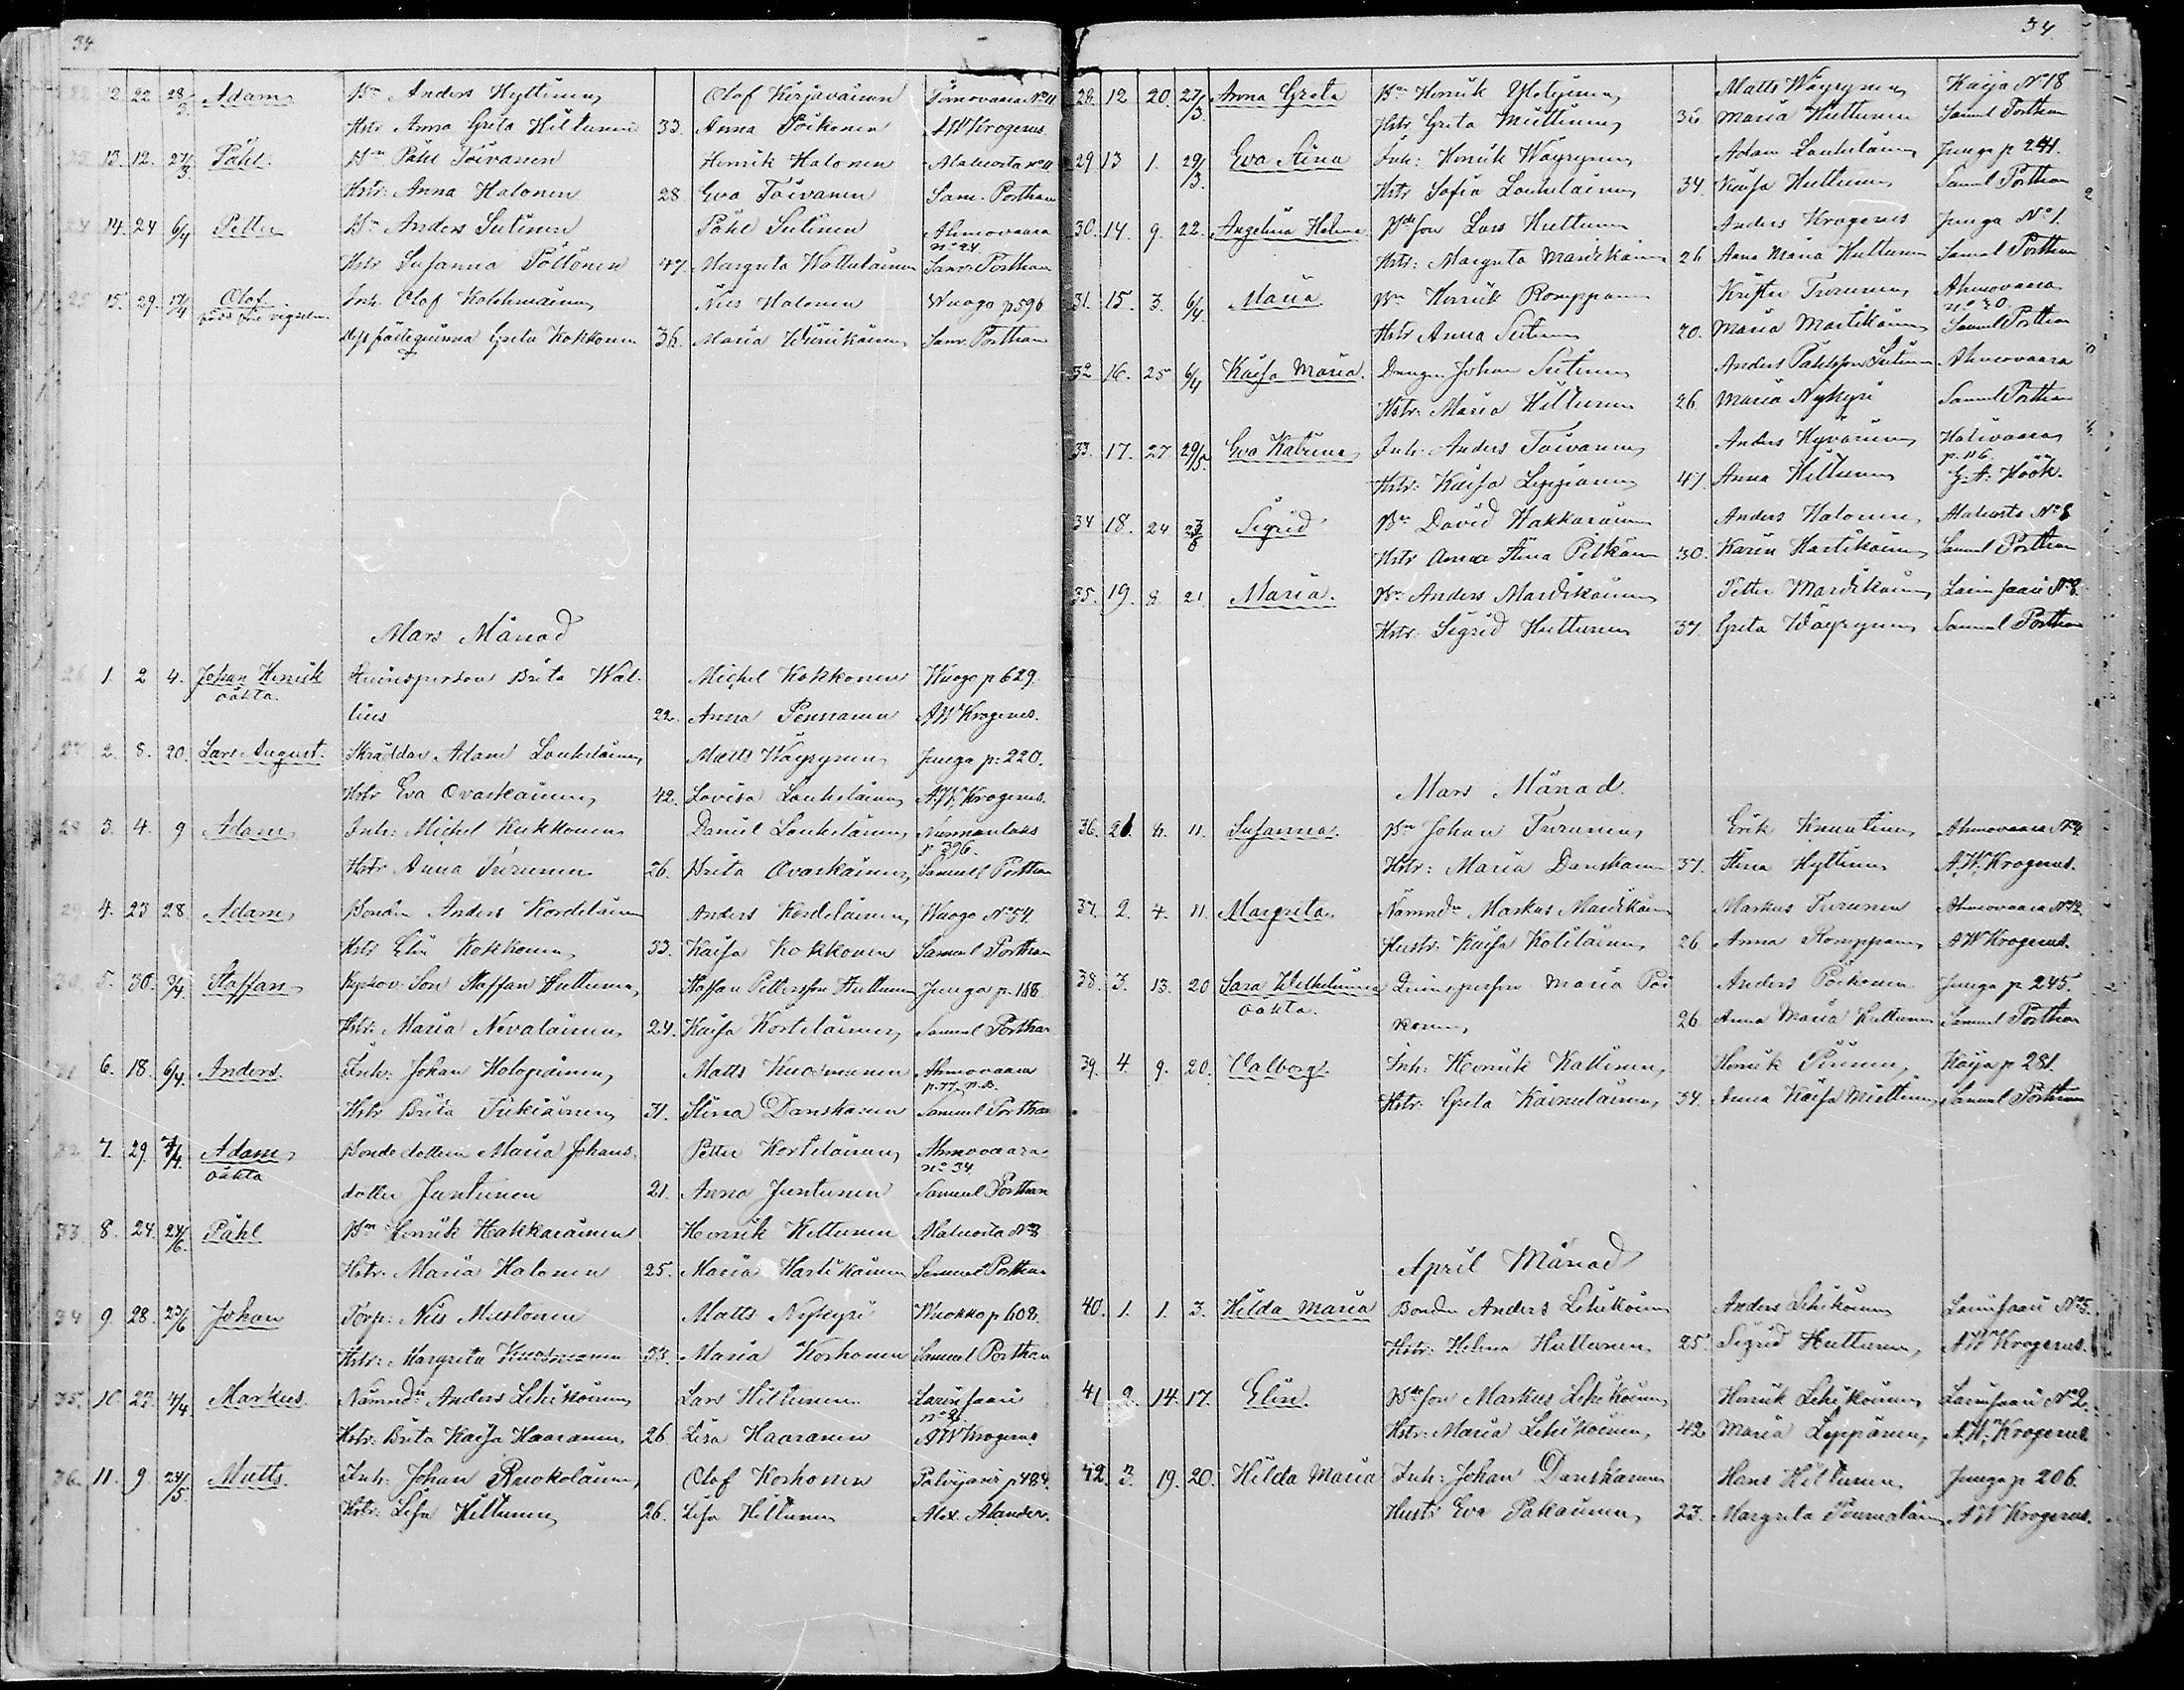 34
12. 22 28/3. Adam Bn Anders Hyttinen Olof Kirjavainen Timovaara No 11
Hstr Anna Greta Hiltunen 33. Anna Poikonen AW Krogerus.
13. 12. 27/3 Påhl. Bn Påhl Toivanen Henrik Halonen
Hstr: Anna Halonen 28 Eva Toivanen Sam. Porthan
24 14. 24 6/4 Petter Bn Anders Sutinen Påhl Sutinen Ahmovaara
no 24
Hstr Susanna Pöllönen 47. Margreta Sam: Porthan
25 15. 29. 17/4 Olof Inh. Olof Kolehmainen Nils Halonen Wuogo p 596
född före vigseln.
Greta Kokkonen 36. Maria Sam. Porthan
Mars Månad
26 1. 2 4. Johan Henrik Qvinsperson Brita Wal- Michel Kokkonen Wuogo p 629.
oäkta.
lius 22. Anna Pennanen AW Krogerus.
27 2. 8. 20. Lars August. Skräddar Adam Louhelainen Matts Wäyrynen Junga p: 220.
Hstr Eva Ovaskainen 42. Lovisa Louhelainen A.W. Krogerus.
28 3. 4. 9 Adam Inh: Michel Kukkonen Daniel Louhelainen
p 396.
Hstr Anna Turunen 26. Brita Ovaskainen Samuel Porthan
29 4. 23 28 Adam Bonden Anders Kordelainen Anders Kordelainen Wuogo No 54
Hstr Elin Kokkonen 33. Kaisa Kokkonen Samuel Porthan
30 5. 30. 3/4. Staffan Son Staffan Huttunen Staffan Pettersson Huttunen Junga p. 188
Hstr: Maria Nevalainen 24. Kaisa Kortelainen Samuel Porthan
31 6. 18. 6/4. Anders. Inh: Johan Holopainen Matts Kuosmanen Ahmovaara
p. 77.
Hstr Brita Tukiainen 31. Stina Danskanen Samuel Porthan
32 7. 29. 7/4. Adam Bonde dottern Maria Johans- Petter Kortelainen Ahmovaara
oäkta no 34
dotter Juntunen 21. Anna Juntunen Samuel Porthan
33 8. 24. 24/6. Påhl Bn Henrik Hakkarainen Henrik Kettunen
Hstr. Maria Halonen 25. Maria Hartikainen Samuel Porthan
34 9. 28. 23/6 Johan Torp: Nils Mustonen Matts Nykyri Wuokko p 608.
Hstr: Margreta Kuosmanen 33. Maria Korhonen Samuel Porthan
35. 10. 23. 4/4. Markus. Nämndn Anders Lehikoinen Lars Hiltunen Larinsaari
Hstr: Brita Kaisa Haaranen 26. Lisa Haaranen AW Krogerus.
36. 11. 9. 24/5. Matts. Inh: Johan Ruokolainen Olof Korhonen Palojärvi p 484.
Hstr: Lisa Hiltunen 26. Lisa Hiltunen Alex. Alander.
34
28. 12 20. 27/3. Anna Greta Bn Henrik Matts Wäyrynen Kaija No 18
Hstr Greta Miettinen 36 Maria Huttunen Samuel Porthan
29 13 1. 29/3. Eva Stina Inh: Henrik Wäyrynen Adam Louhelainen Junga p 241.
Hstr Sofia Louhelainen 34. Kaisa Huttunen Samuel Porthan
30. 14. 9. 22. Angelina Helena Bdeson Lars Huttunen Anders Krogerus Junga No 1.
Hstr: Margreta Mardikainen 26 Anna Maria Huttunen Samuel Porthan
31. 15. 3. 6/4. Maria. Bn Henrik Romppanen Krister Turunen Ahmovaara
no 30.
Hstr Anna Sutinen 20. Maria Martikainen Samuel Porthan
32 16. 25 6/4 Kaisa Maria. Dreng. Johan Sutinen Anders Påhlsson Sutinen Ahmovaara
Hstr: Maria Hiltunen 26. Maria Nykyri Samuel Porthan
33. 17. 27 29/5. Eva Katrina Inh: Anders Toivanen Anders Hyvärinen Halivaara
p. 116.
Hstr: Kaisa Leppänen 47. Anna Hiltunen G. A. Höök.
34 18. 24 23/6 Sigrid Bn David Hakkarainen Anders Halonen
Hstr Anna Stina Pitkänen 30. Karin Hartikainen Samuel Porthan
35. 19. 8 21 Maria. Bn Anders Mardikainen Petter Mardikainen Larinsaari No 8.
Hstr: Sigrid Huttunen 37. Greta Wäyrynen Samuel Porthan
Mars Månad.
36. 1. 4. 11. Susanna. Bn Johan Turunen Erik Knuutinen Ahmovaara
Hstr: Maria Danskanen 37. Stina Hyttinen A.W. Krogerus.
37. 2. 4. 11. Margreta. Nämndn Markus Mardikainen Markus Turunen Ahmovaara
Hustr: Kaisa Kolilainen 26 Anna Romppanen AW Krogerus.
38. 3. 13. 20 Sara Wilhelmina Qvinsperson Maria Poi- Anders Poikonen Junga p 245.
oäkta.
konen 26. Anna Maria Huttunen Samuel Porthan
39. 4. 9. 20. Valborg. Inh: Henrik Henrik Piirinen Kaija p 281.
Hstr: Greta Kainulainen 34. Anna Kaisa Miettinen Samuel Porthan
April Månad
40. 1. 1. 3. Hilda Maria Bonden Anders Lehikoinen Anders Lehikoinen Larinsaari No 5.
Hstr: Helena Huttunen 25. Sigrid Huttunen AW Krogerus.
41 2. 14. 17. Elin. Bdeson Markus Lehikoinen Henrik Lehikoinen Larinsaari No 2.
Hstr: Maria Lehikoinen 42 Maria Leppänen A.W. Krogerus
42 3. 19. 20. Hilda Maria Inh: Johan Danskanen Hans Hiltunen Junga p 206.
Hustr Eva Pakarinen 23. Margreta AW Krogerus.